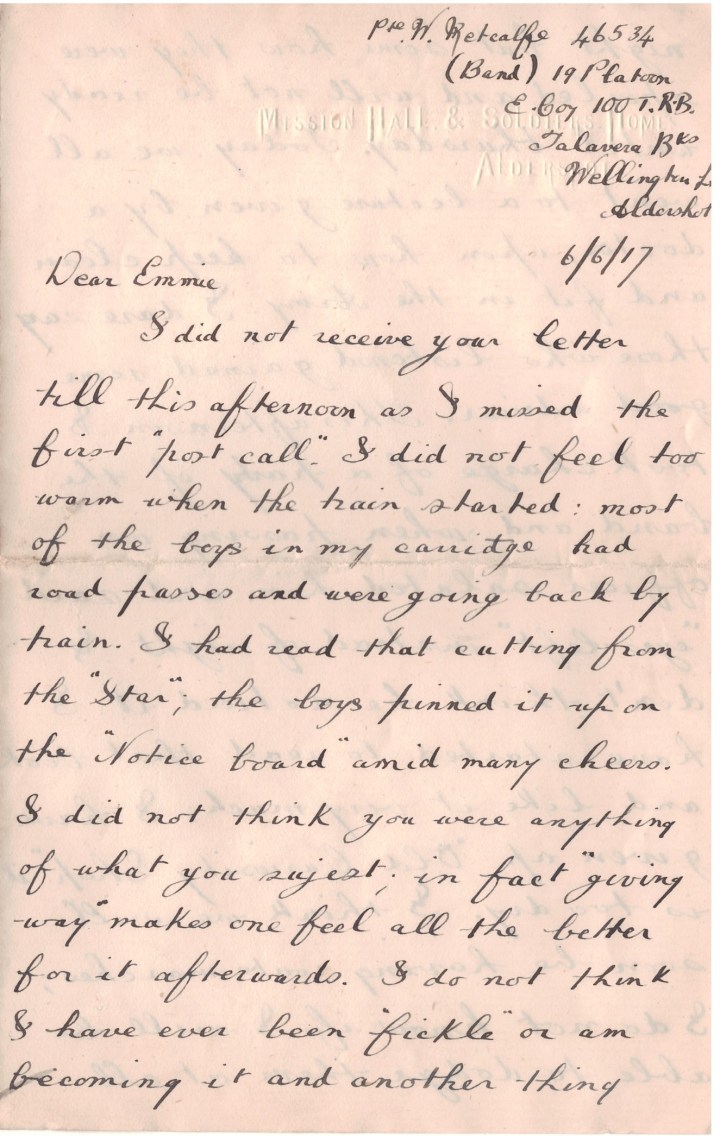 Pte. W. Metcalfe 46534
(Band) 19 Platoon
E. Coy 100 T.R.B.
MISSION HALL & SOLDIERS HOME
Talavera Bks
ALDERSHOT
Wellington L
Aldershot
6/6/17
Dear Emmie
I did not receive your letter
till this afternoon as I missed the
first "post call". I did not feel too
warm when the train started: most
of the boys in my carridge had
road passes and were going back by
train. I had read that cutting from
the "Star"; the boys pinned it up on
the "Notice board" amid many cheers.
I did not think you were anything
of what you sujest; in fact "giving
way" makes one feel all the better
for it afterwards. I do not think
I have ever been "fickle" or am
becoming it and another thing